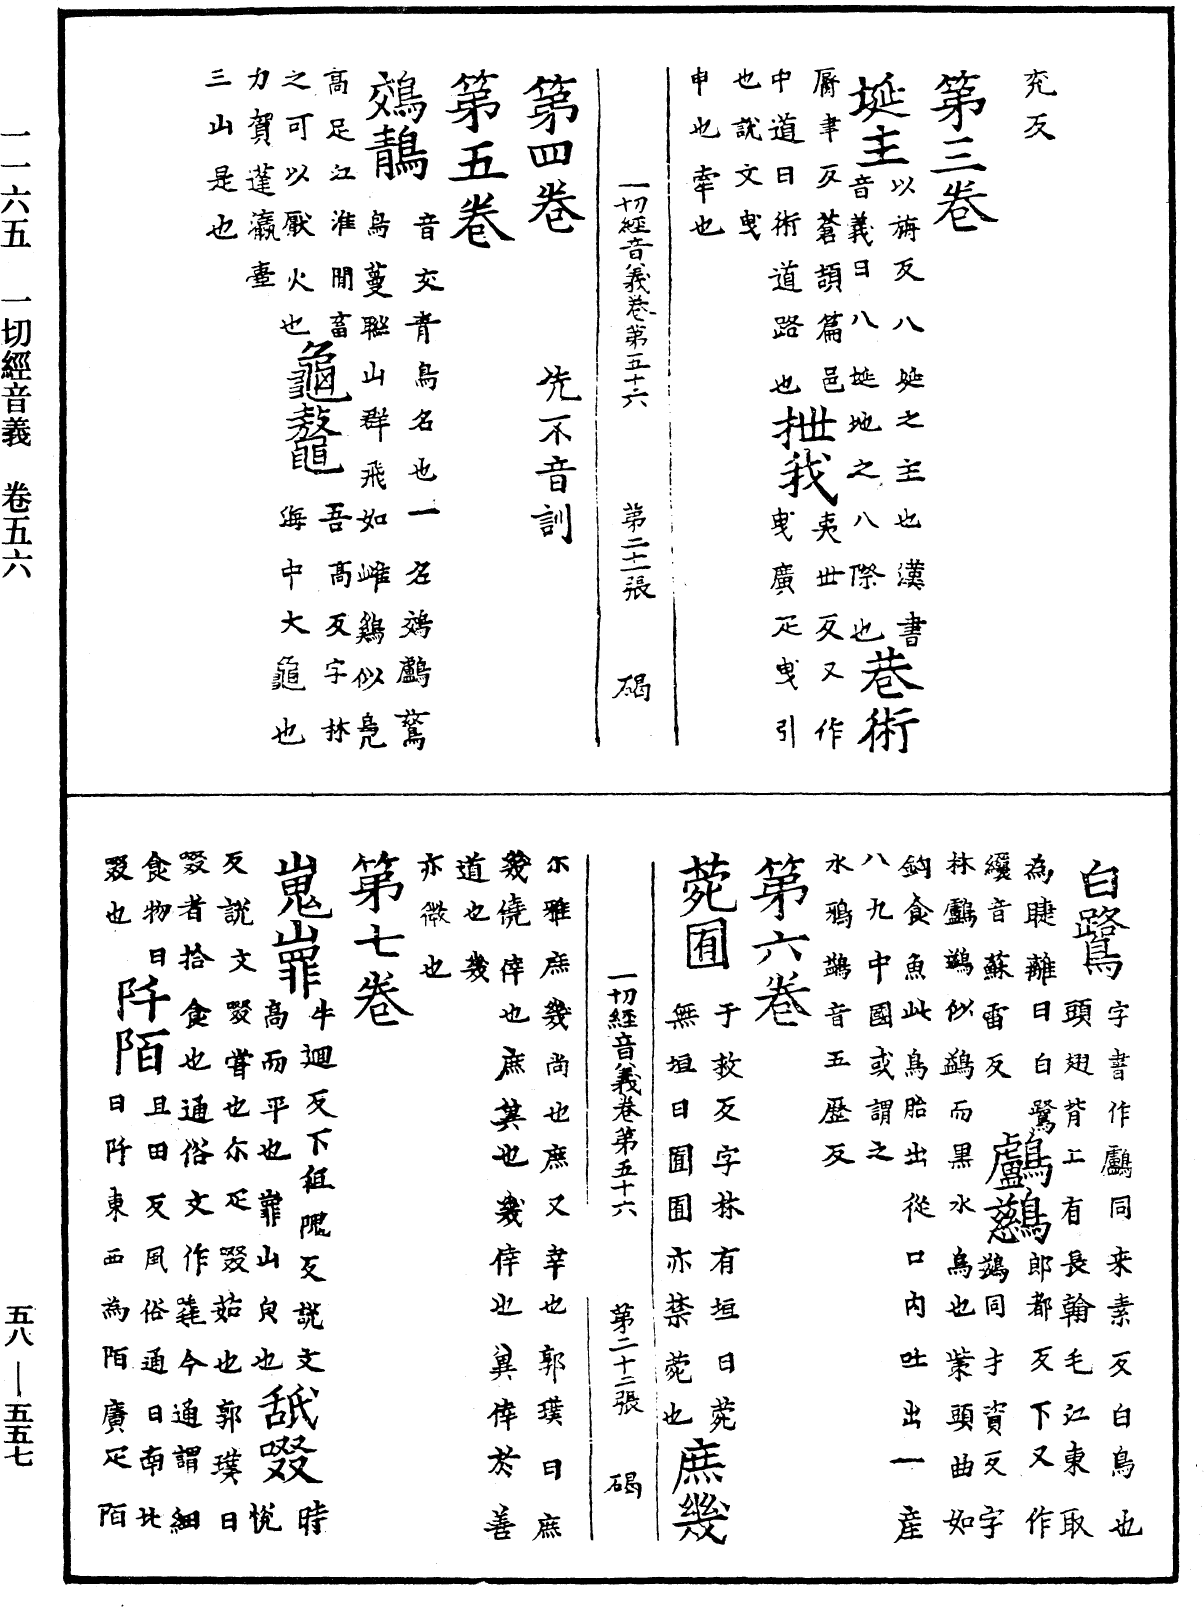 兖反
第三卷
埏主
以旃反八埏之主也漢書
音義曰八埏地之八際也
巷術
脣聿反蒼頡篇邑
中道曰術道路也
抴我
夷世反又作
曳廣疋曳引
也説文曳
申也牽也
一切經音義卷第五十六 第二十一張 碣
第四卷 先不音訓
第五卷
鵁鶄
音交青鳥名也一名鵁鸕鶿
鳥蔓聯山群飛如雌鷄似鳧
高足江淮間畜
之可以厭火也
龜鼇
吾高反字林
海中大龜也
力賀蓬瀛臺
三山是也
白鷺
字書作鸕同来素反白鳥也
頭翅背上有長翰毛江東取
為睫䍦曰白鷺
縗音蘇雷反
鸕鷀
郎都反下又作
鷀同才資反字
林鸕鷀似鷁而黑水鳥也紫頭曲如
鈎食魚此鳥胎出從口內吐出一産
八九中國或謂之
水鴉鷁音五歷反
第六卷
菀囿
于救反字林有垣曰菀
無垣曰囿囿亦禁菀也
庶幾
尒雅庶幾尚也庶又幸也郭璞曰庶
幾僥倖也庶其也幾倖也冀倖於善
道也幾
亦微也
一切經音義卷第五十六 第二十二張 碣
第七卷
嵬嶵
牛迴反下徂隗反説文
高而平也嶵山皃也
舐啜
時悅
反説文啜嘗也尒疋啜茹也郭璞曰
啜者拾食也通俗文作今通謂細
食物曰
啜也
阡陌
且田反風俗通曰南北
曰阡東西為陌廣疋陌
一一六五 一切經音義 卷五六
五八—五五七